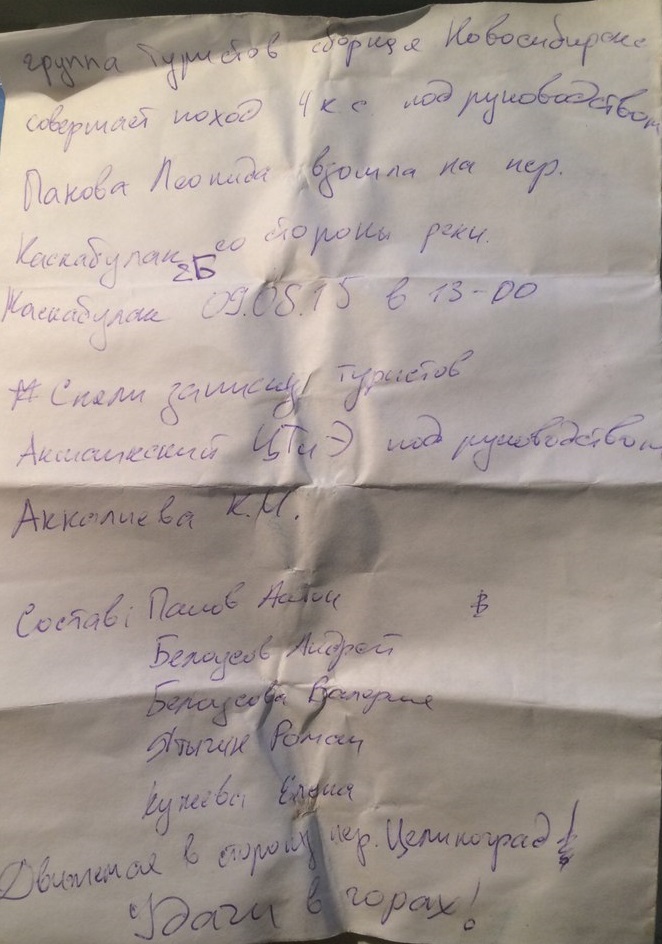 группа туристов сборная Новосибирска
совершает поход 4 к.с. под руководством
Панова Леонида взошла на пер.
Каскабулак 2Б со стороны реки
Каскабулак 09.08.15 в 13-00
Сняли записку туристов
ЦТиЭ под руководством
Аккалиева К.М.
Состав: Панов Антон
Белоусов Андрей
Белоусова Валерия
Роман
Елена
Движемся в сторону пер. Целиноград
Удачи в горах!